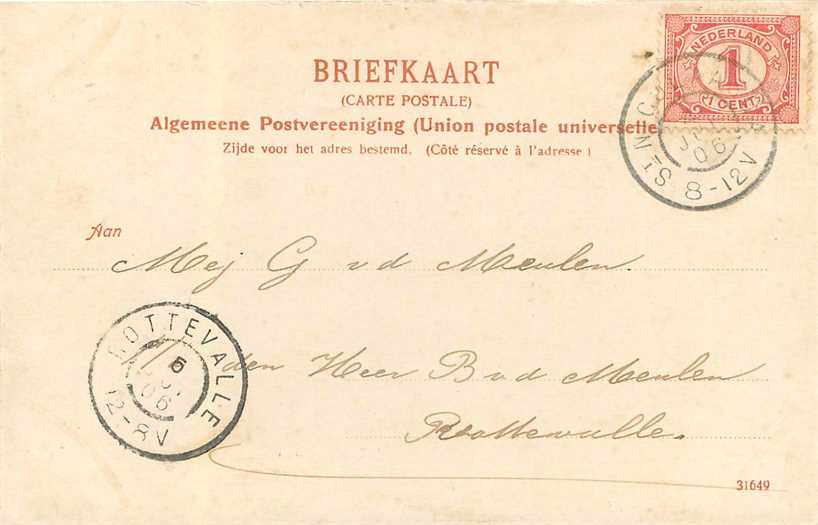 NEDERLAND
1
1 CENT
8-12V
06
BRIEFKAART
(CARTE POSTALE)
Algemeene Postvereeniging (Union postale universelle
Zijde voor het adres bestemd. (Côté réservé à l'adresse)
Aan
Mej G v d Meulen.
den Heer B v d Meulen
Rottevalle.
ROTTEVALLE
5
06
12-8V
31649